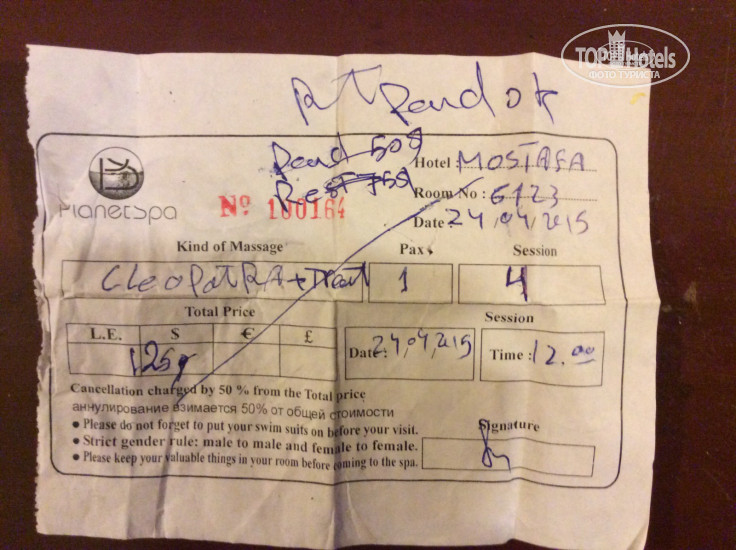 TOP Hotels
ФОТО ТУРИСТА
Pand ok
Pand 50$
Hotel : MOSTAFA
Rest 75$
Room No : 6123
PlanetSpa
Nº 100164
Date : 24,04,2015
Kind of Massage Pax Session
CleoPatRA + 1 4
Total Price Session
L.E. $ € £
125$
Date: 24,04,2015 Time : 12.00
Cancellation charged by 50 % from the Total price
аннулирование взимается 50% от общей стоимости
• Please do not forget to put your swim suits on before your visit.
• Strict gender rule: male to male and female to female.
• Please keep your valuable things in your room before coming to the spa.
Signature